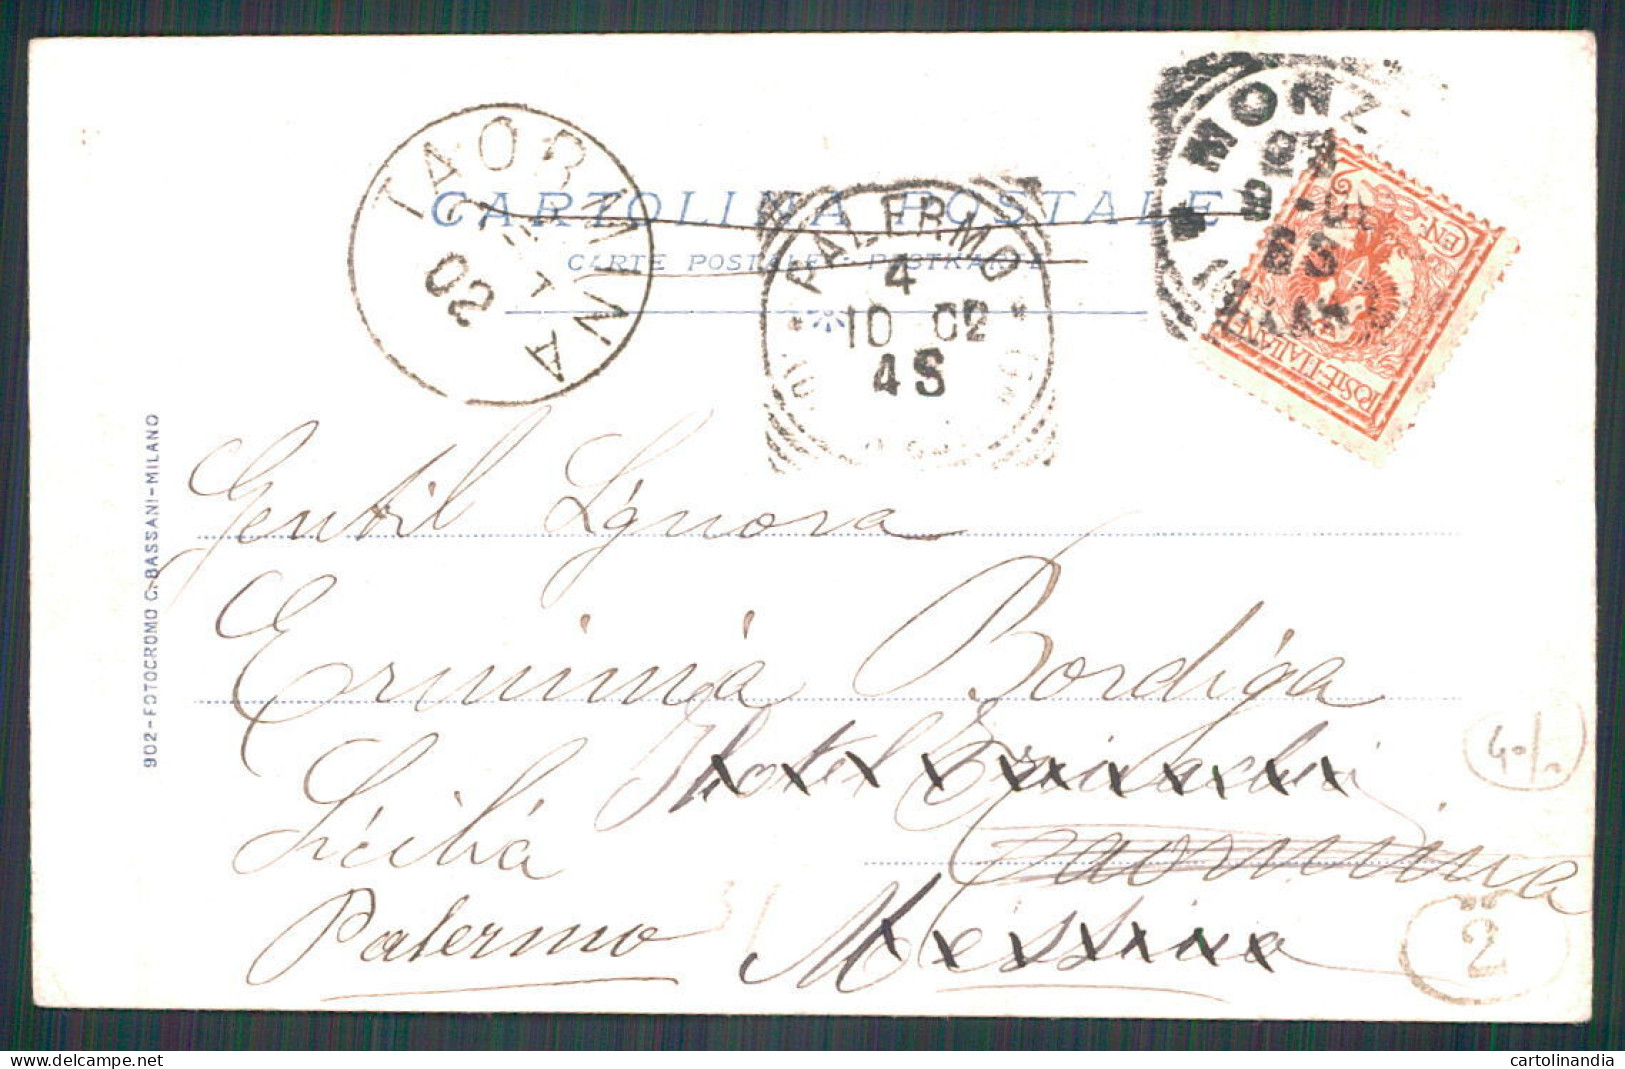 CARTOLINA POSTALE
CARTE POSTALE - POSTKARTE
TAORMINA
02
PALERMO
4
10 02
4S
MONZ
POSTE ITALIANE
2
902 - FOTOCROMO G. BASSANI - MILANO
Gentil Signora
Erminia Bordiga
Hotel
Sicilia
Taormina
Palermo
Messina
40/
2
cartolinandia